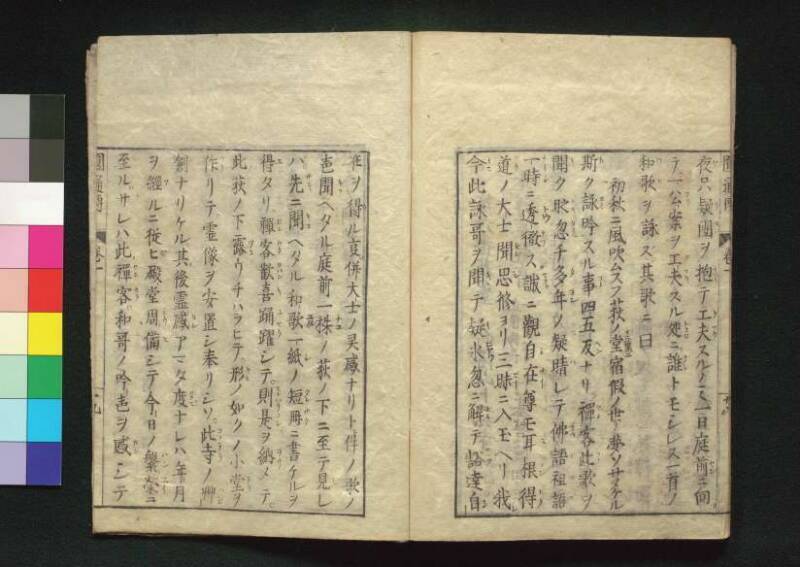 夜只疑團ヲ抱テ工夫スルノミ一日庭前ニ向
テ一公案ヲ工夫スル処ニ誰トモシレス一首ノ
和歌ヲ詠ス其歌ニ曰
初秋ニ風吹ムスフ荻ノ堂宿假ノ世ノ夢ソサメケル
斯ク詠吟スル事四五反ナリ禪客此歌ヲ
聞ク眹忽チ多年ノ疑晴レテ佛語祖語
一時ニ透徹ス誠ニ觀自在尊モ耳根得
道ノ大士聞思修ヨリ三昧ニ入玉ヘリ我
今此詠哥ヲ聞テ疑氷忽ニ解テ悟達自
在ヲ得ル亘併大士ノ冥感ナリト件ノ歌ノ
声聞ヘタル庭前一株ノ荻ノ下ニ至テ見レ
ハ先ニ聞ヘタル和歌一紙ノ短冊ニ書ケルヲ
得タリ禪客歡喜踊躍シテ則是ヲ納メテ
此荻ノ下ニ露ウチハラヒテ形ノ如クノ小堂ヲ
作リテ霊像ヲ安置シ奉リシソ此寺ノ艸
創ナリケル其後霊感アマタ度ナレハ年月
ヲ經ルニ從ヒ殿堂周備シテ今日ノ繁榮ニ
至ルサレハ此禪客和哥ノ吟声ヲ感シテ
圓通傳 巻一